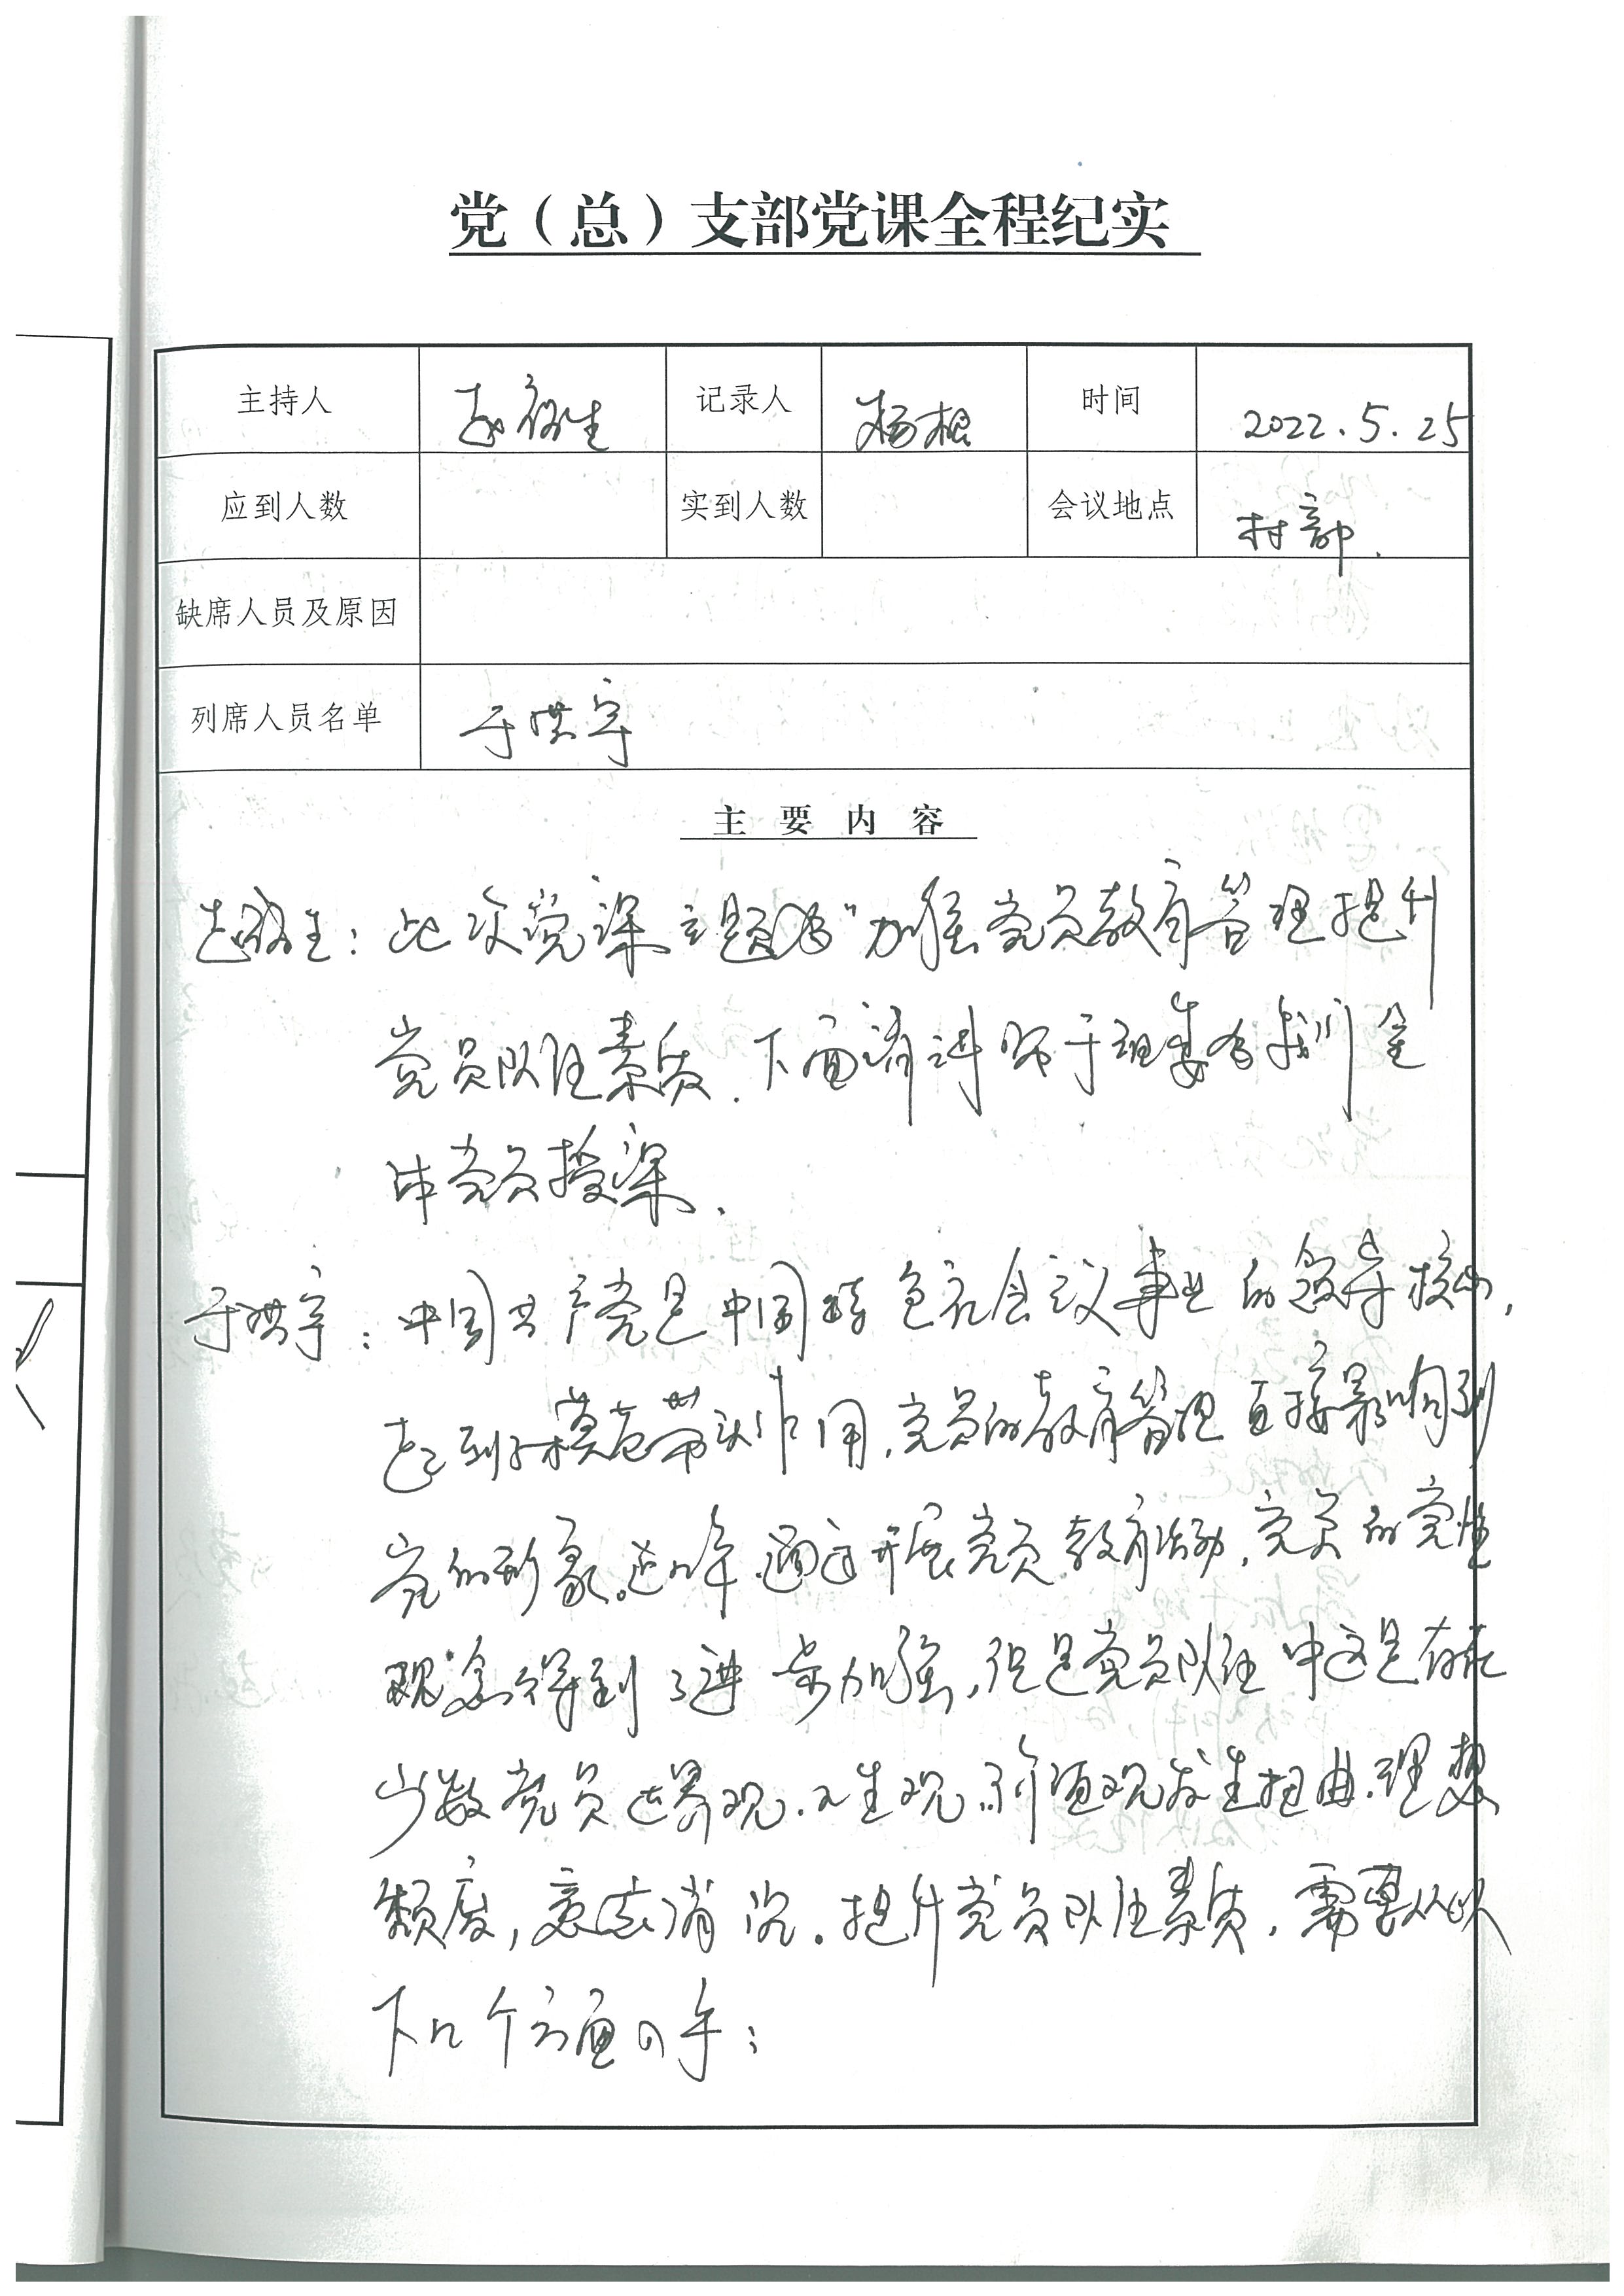 党（总）支部党课全程纪实
主持人 记录人 杨根 时间 2022.5.25
应到人数 实到人数 会议地点 村部.
缺席人员及原因
列席人员名单 于洪宇
主要内容
：此次党课主题为"加强党员教育管理提升
党员队伍素质.下面请讲师于组委为我们全
体党员授课.
于洪宇：中国共产党是中国特色社会主义事业的领导核心,
起到了模范带头作用,党员的教育管理直接影响到
党的形象。近几年通过开展党员教育活动,党员的党性
观念得到了进一步加强,但是党员队伍中还是存在
少数党员世界观.人生观.价值观发生扭曲.理想
颓废,意志消沉.提升党员队伍素质,需要从以
下几个方面入手：